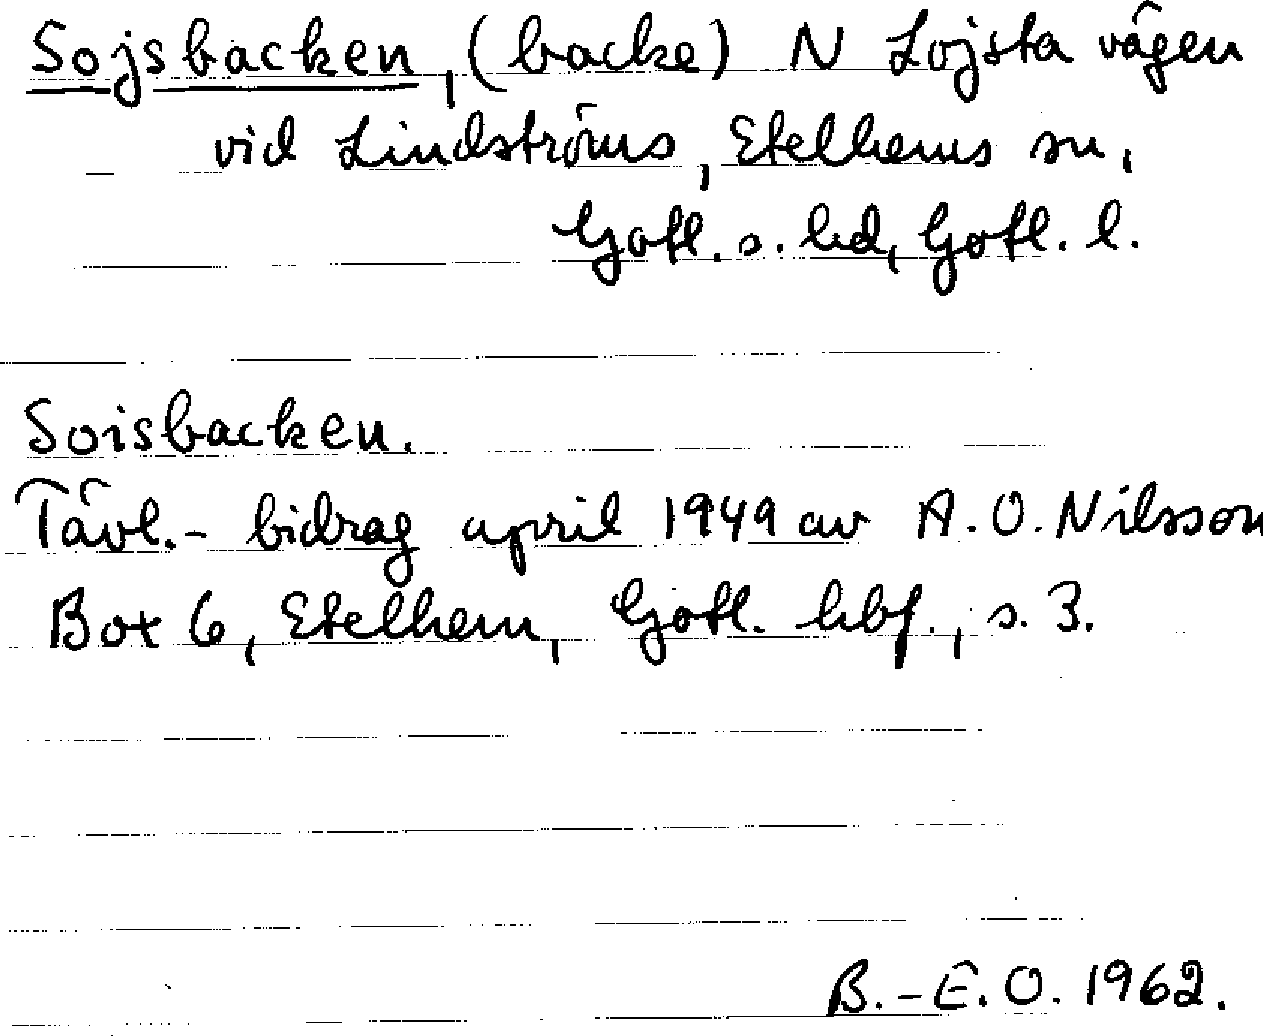 Sojsbacken, (backe) N Lojsta vägen
vid Lindströms, Etelhems sn,
Gotl. s. hd, Gotl. l.
Soisbacken.
Tävl.- bidrag april 1949 av A. O. Nilsson
Box 6, Etelhem, Gotl. hbf., s. 3.
B.-E. O. 1962.